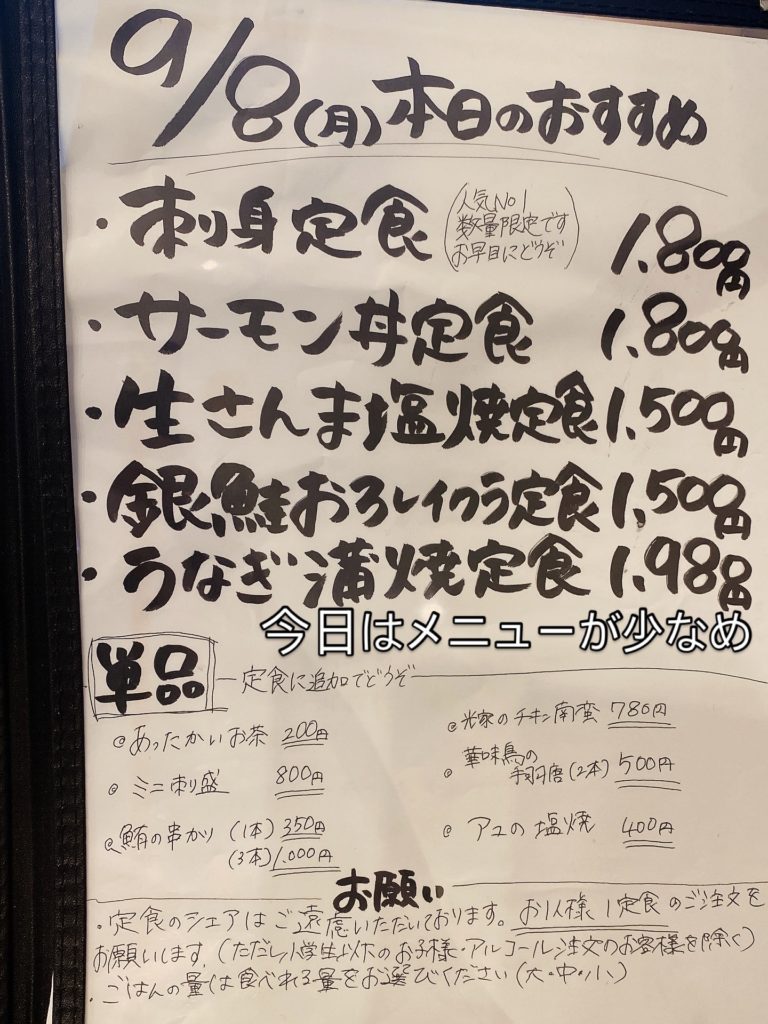 9/8(月)本日のおすすめ
・刺身定食 (人気No1 数量限定です お早目にどうぞ) 1,800円
・サーモン丼定食 1,800円
・生さんま塩焼定食 1,500円
・銀鮭おろしイクラ定食 1,500円
・うなぎ蒲焼定食 1,980円
今日はメニューが少なめ
単品 定食に追加でどうぞ
◎あったかいお茶 200円
◎ミニ刺盛 800円
◎鮪の串カツ (1本) 350円
(3本) 1,000円
◎光家のチキン南蛮 780円
◎華味鳥の手羽唐(2本) 500円
◎アユの塩焼 400円
お願い
・定食のシェアはご遠慮いただいております。お1人様1定食のご注文を
お願いします。(ただし小学生以下のお子様・アルコール注文のお客様を除く)
・ごはんの量は食べれる量をお選びください(大・中・小)